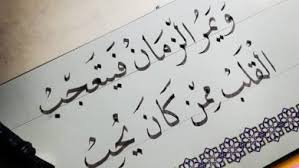 وَيَمُرُّ الزَّمَانُ فَيَتَعَجَّبُ
القَلْبُ مِمَّنْ كَانَ يُحِبُّ